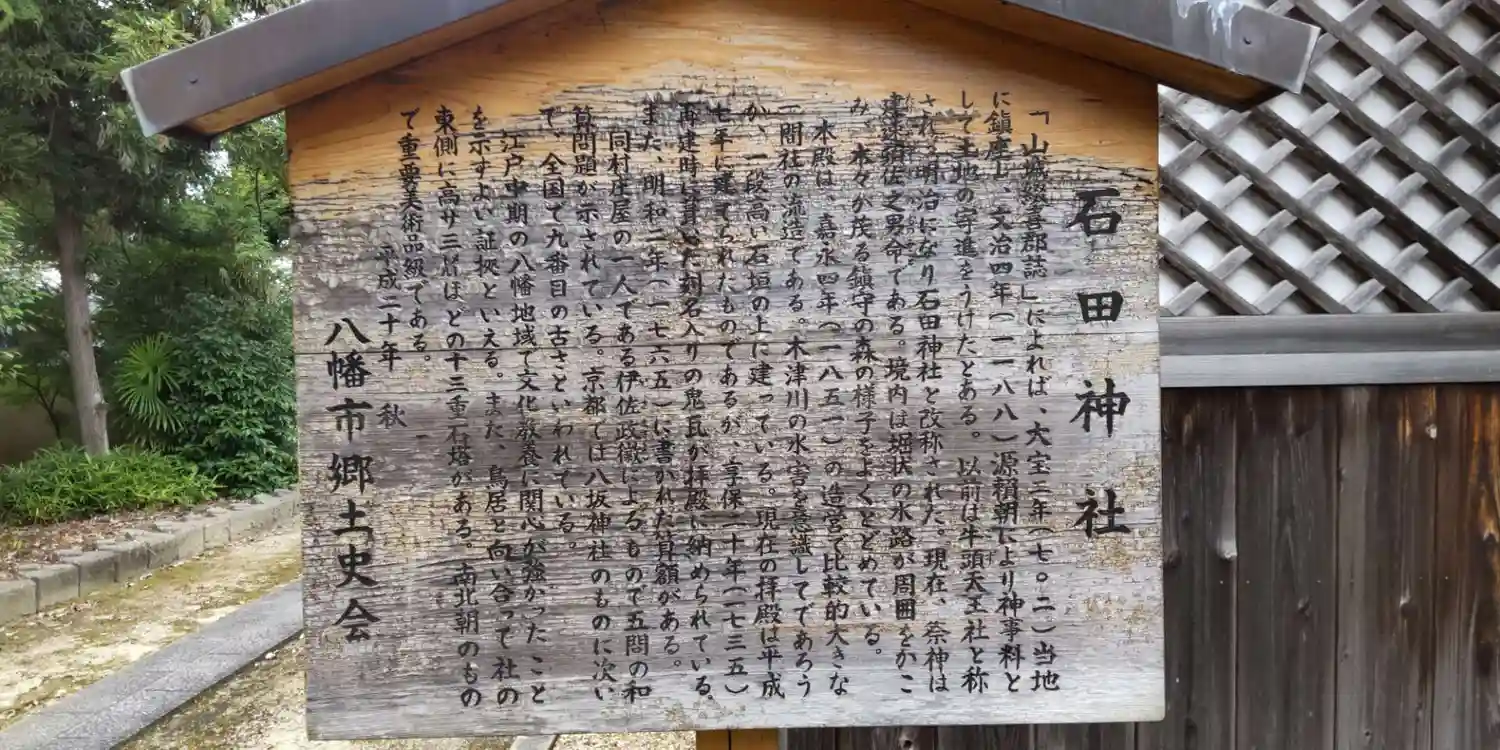 石田神社
「山城綴喜郡誌」によれば、大宝二年(七〇二)当地
に鎮座し、文治四年(一一八八)源頼朝により神事料と
して土地の寄進をうけたとある。以前は牛頭天王社と称
され、明治になり石田神社と改称された。現在、祭神は
建速須佐之男命である。境内は堀状の水路が周囲をかこ
み、木々が茂る鎮守の森の様子をよくとどめている。
本殿は、嘉永四年(一八五一)の造営で比較的大きな
一間社の流造である。木津川の水害を意識してであろう
が、一段高い石垣の上に建っている。現在の拝殿は平成
七年に建てられたものであるが、享保二十年(一七三五)
再建時に葺いた刻名入りの鬼瓦が拝殿に納められている。
また、明和二年(一七六五)に書かれた算額がある。
同村庄屋の一人である伊佐政徴によるもので五問の和
算問題が示されている。京都では八坂神社のものに次い
で、全国で九番目の古さといわれている。
江戸中期の八幡地域で文化教養に関心が強かったこと
を示すよい証拠といえる。また、鳥居と向い合って社の
東側に高サ三㍍ほどの十三重石塔がある。南北朝のもの
で重要美術品級である。
平成二十年 秋
八幡市郷土史会